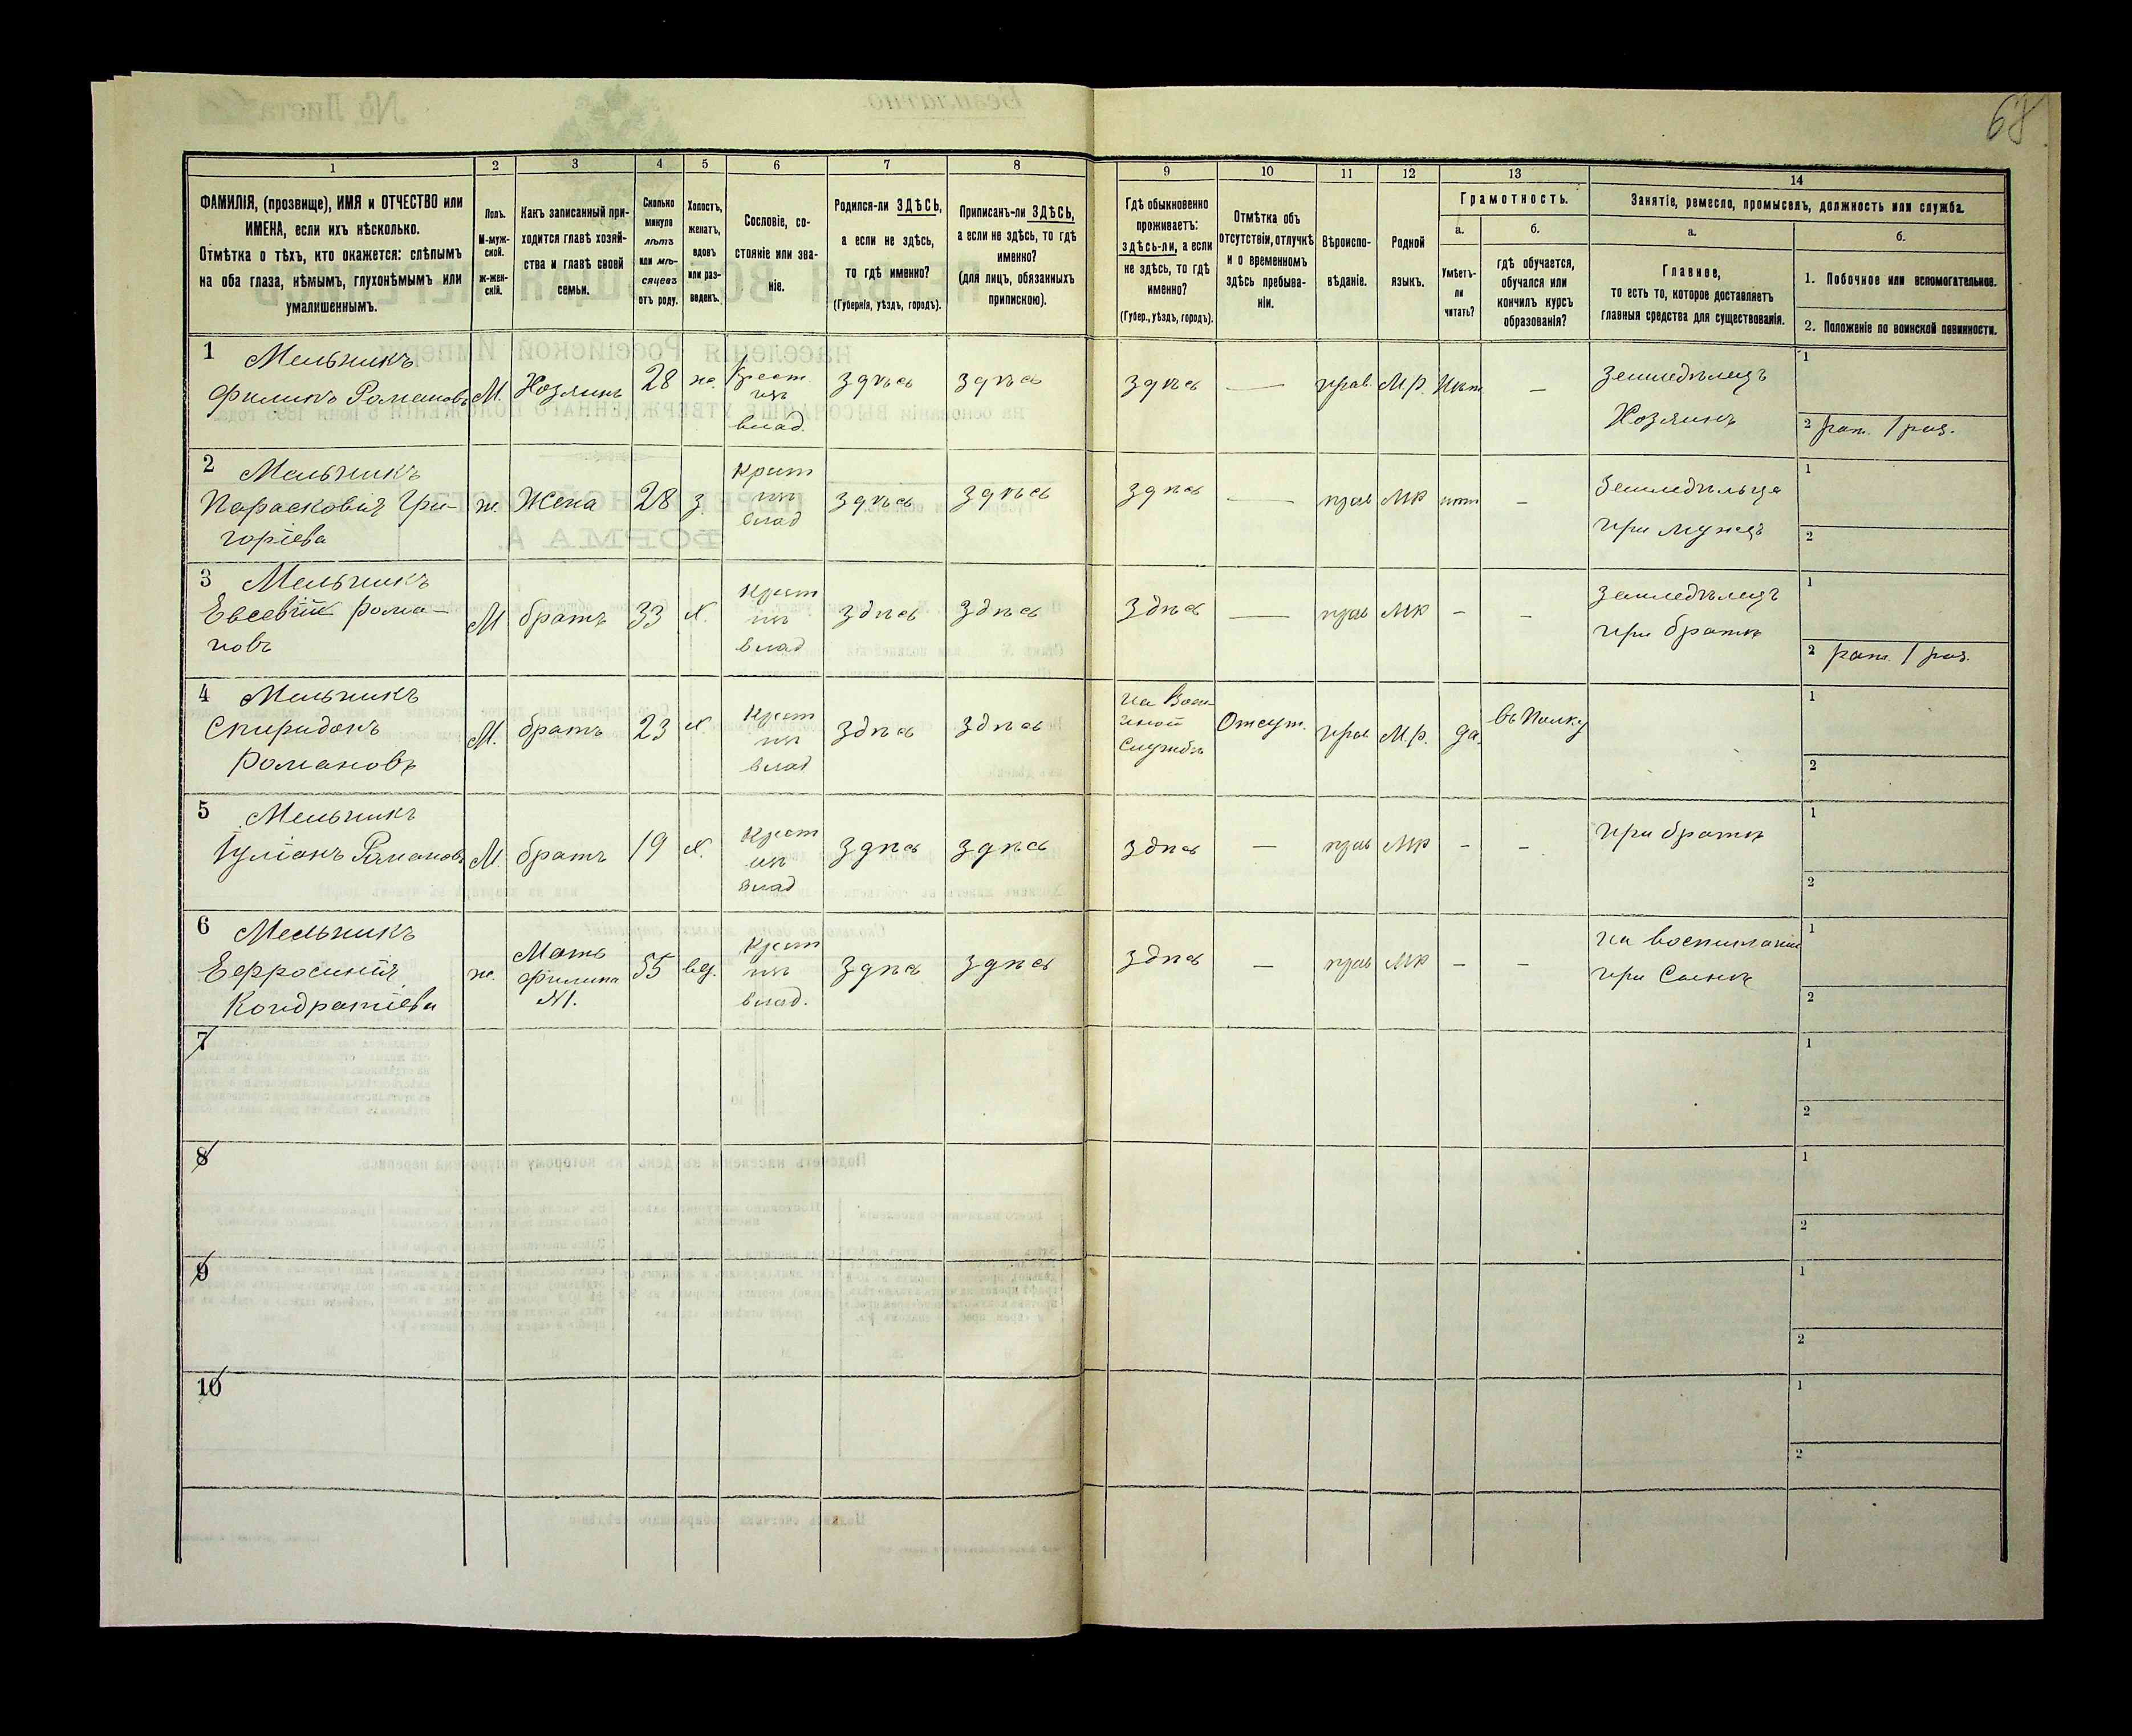 68
1 2 3 4 5 6 7 8 9 10 11 12 13 14
ФАМИЛІЯ, (прозвище), ИМЯ и ОТЧЕСТВО или
ИМЕНА, если ихъ нѣсколько.
Отмѣтка о тѣхъ, кто окажется: слѣпымъ
на оба глаза, нѣмымъ, глухонѣмымъ или
умалишеннымъ.
Полъ.
М-муж-
ской.
Ж-жен-
скій.
Какъ записанный при-
ходится главѣ хозяй-
ства и главѣ своей
семьи.
Сколько
минуло
лѣтъ
или мѣ-
сяцевъ
отъ роду.
Холостъ,
женатъ,
вдовъ
или раз-
веденъ.
Сословіе, со-
стояніе или зва-
ніе.
Родился-ли ЗДѢСЬ,
а если не здѣсь,
то гдѣ именно?
(Губернія, уѣздъ, городъ).
Приписанъ-ли ЗДѢСЬ,
а если не здѣсь, то гдѣ
именно?
(для лицъ, обязанныхъ
припискою).
Гдѣ обыкновенно
проживаетъ:
здѣсь-ли, а если
не здѣсь, то гдѣ
именно?
(Губер., уѣздъ, городъ).
Отмѣтка объ
отсутствіи, отлучкѣ
и о временномъ
здѣсь пребыва-
ніи.
Вѣроиспо-
вѣданіе.
Родной
языкъ.
Грамотность.
а.
Умѣетъ-
ли
читать?
б.
гдѣ обучается,
обучался или
кончилъ курсъ
образованія?
Занятіе, ремесло, промыселъ, должность или служба.
а.
Главное,
то есть то, которое доставляетъ
главныя средства для существованія.
б.
1. Побочное или вспомогательное.
2. Положеніе по воинской повинности.
1 Мельникъ
Филипъ Романовъ М. Хозяинъ 28 ж. Крест. изъ влад. здѣсь здѣсь здѣсь — прав. М.р. Нѣт — Земледѣлецъ Хозяинъ
1
2 рат. 1 раз.
2 Мельникъ
Парасковія Гри-
горіева
ж. Жена 28 з. крест изъ влад здѣсь здѣсь здѣсь — прав МР нѣт — Земледѣлца при мужѣ
1
2
3 Мельникъ
Евсевій Рома-
новъ
М братъ 33 х. крест изъ влад здѣсь здѣсь здѣсь — прав МР – – Земледѣлецъ при братѣ
1
2 рат. 1 раз.
4 Мельникъ
Спиридонъ
Романовъ
М. братъ 23 х крест изъ влад здѣсь здѣсь на Воен-
ной
Службѣ Отсут. прав М.р. да. въ Полку
1
2
5 Мельникъ
Іуліанъ Романовъ М. братъ 19 х. крест изъ влад здѣсь здѣсь здѣсь — прав МР – – при братѣ
1
2
6 Мельникъ
Ефросинія
Кондратіева
ж. Мать Филипа №1. 55 вд. крест изъ влад. здѣсь здѣсь здѣсь — прав МР – – на воспитаніи
при Сынѣ
1
2
7
1
2
8
1
2
9
1
2
10
1
2